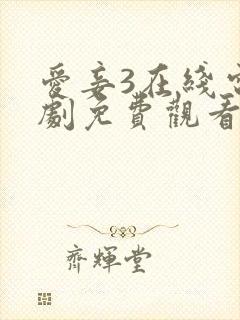 愛妾3在綫電
劇免費觀看
齊輝堂